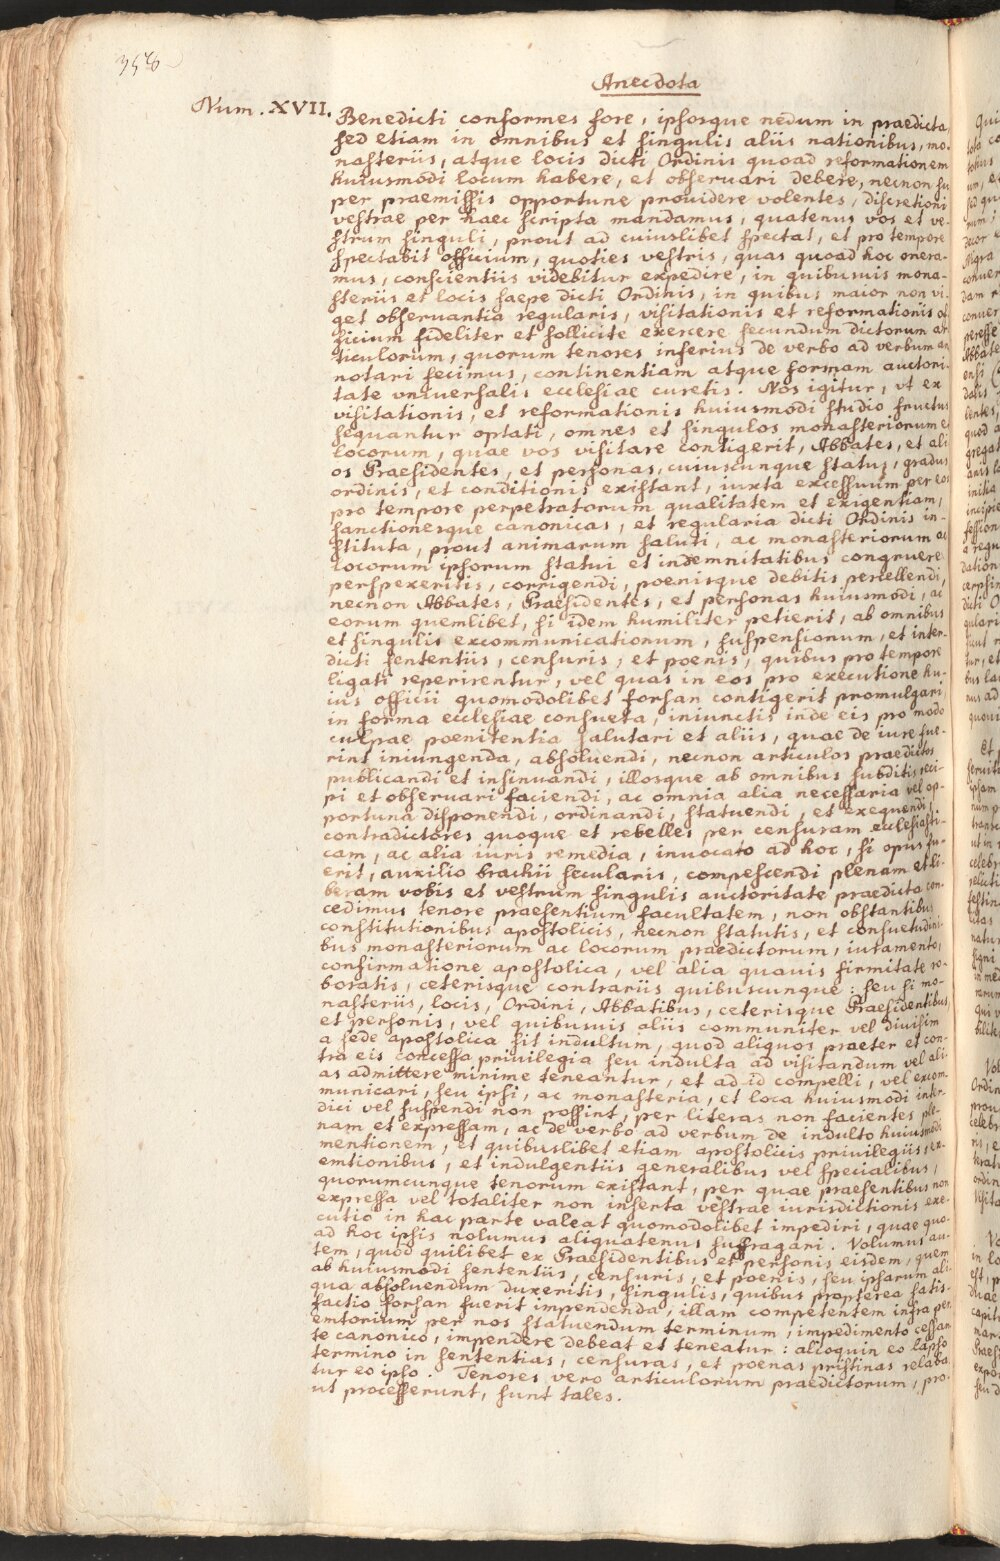 Anecdota
Num. XVII.
Benedicti conformes fore, ipsosque nedum in praedicta,
sed etiam in omnibus et singulis aliis nationibus, mo-
nasteriis, atque locis dicti Ordinis quoad reformationem
huiusmodi locum habere, et observari debere, necnon su
per praemissis opportune providere volentes, discretioni
vestrae per haec scripta mandamus, quatenus vos et ve-
strum singuli, prout ad cuiuslibet spectat, et pro tempore
spectabit officium, quoties vestris, quas quoad hoc onera-
mus, conscientiis videbitur expedire, in quibusuis mona-
steriis et locis saepe dicti Ordinis, in quibus maior non vi-
get observantia regularis, visitationis et reformationis of
ficium fideliter et sollicite exercere secundum dictorum ar
ticulorum, quorum tenores inferius de verbo ad verbum an
notari fecimus, continentiam atque formam auctori-
tate vniuersalis ecclesiae curetis. Nos igitur, vt ex
visitationis, et reformationis huiusmodi studio fructus
sequantur optati, omnes et singulos monasteriorum et
locorum, quae vos visitare contigerit, Abbates, et ali
os Praesidentes, et personas, cuiuscunque status, gradus
ordinis, et conditionis existant, iuxta excessuum per eos
pro tempore perpetratorum qualitatem et exigentiam,
sanctionesque canonicas, et regularia dicti Ordinis in-
stituta, prout animarum saluti, ac monasteriorum ac
locorum ipsorum statui et indemnitatibus congruere
perspexeritis, corrigendi, poenisque debitis percellendi,
necnon Abbates, Praesidentes, et personas huiusmodi, ac
eorum quemlibet, si idem humiliter petierit, ab omnibus
et singulis excommunicationum, suspensionum, et inter-
dicti sententiis, censuris, et poenis, quibus pro tempore
ligati reperirentur, vel quas in eos pro executione hu-
ius officii quomodolibet forsan contigerit promulgari,
in forma ecclesiae consueta, iniunctis inde eis pro modo
culpae poenitentia salutari et aliis, quae de iure fue-
rint iniungenda, absoluendi, necnon articulos praedictos
publicandi et insinuandi, illosque ab omnibus subditis reci-
pi et observari faciendi, ac omnia alia necessaria vel op-
portuna disponendi, ordinandi, statuendi, et exequendi,
contradictores quoque et rebelles per censuram ecclesiasti-
cam, ac alia iuris remedia, invocato ad hoc, si opus fu-
erit, auxilio brachii secularis, compescendi plenam et li-
beram vobis et vestrum singulis auctoritate praedicta con-
cedimus tenore praesentium facultatem, non obstantibus
constitutionibus apostolicis, necnon statutis, et consuetudini-
bus monasteriorum ac locorum praedictorum, iuramento,
confirmatione apostolica, vel alia quauis firmitate ro-
boratis, ceterisque contrariis quibuscunque: seu si mo-
nasteriis, locis, Ordini, Abbatibus, ceterisque Praesidentibus,
et personis, vel quibusuis aliis communiter vel diuisim
a sede apostolica sit indultum, quod aliquos praeter et con-
tra eis concessa privilegia seu indulta ad visitandum vel ali-
as admittere minime teneantur, et ad id compelli, vel excom-
municari, seu ipsi, ac monasteria, et loca huiusmodi inter-
dici vel suspendi non possint, per literas non facientes ple-
nam et expressam, ac de verbo ad verbum de indulto huiusmodi
mentionem, et quibuslibet etiam apostolicis privilegiis, ex-
emtionibus, et indulgentiis generalibus vel specialibus,
quorumcunque tenorum existant, per quae praesentibus non
expressa vel totaliter non inserta vestrae iurisdictionis exe-
cutio in hac parte valeat quomodolibet impediri, quae quo-
ad hoc ipsis nolumus aliquatenus suffragari. Volumus au-
tem, quod quilibet ex Praesidentibus et personis eisdem, quem
ab huiusmodi sententiis, censuris, et poenis, seu ipsarum ali-
qua absoluendum duxeritis, singulis, quibus propterea satis-
factio forsan fuerit impendenda, illam competentem infra per
emtorium per nos statuendum terminum, impedimento cessan
te canonico, impendere debeat et teneatur: alioquin eo lapso
termino in sententias, censuras, et poenas pristinas relaba
tur eo ipso. Tenores vero articulorum praedictorum, pro-
ut processerunt, sunt tales.